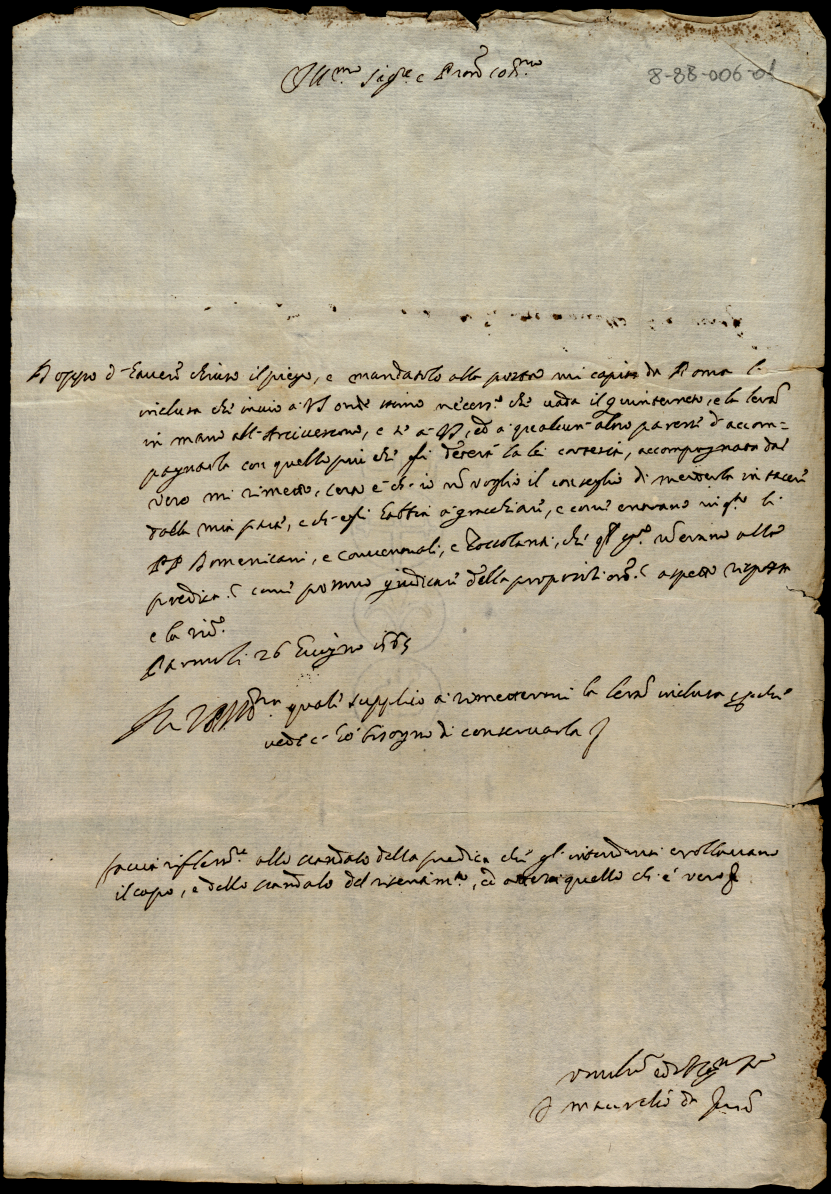 Ill.mo Sig.re e Pron Col.mo
8-88-006-01
Doppo d'haver chiuso il piego, e mandatolo alla posta mi capita da Roma l'
inclusa che invio a VS onde stimo necess.o che vada il quinterneto, e la letra
in mano all'Arcivescovo, e se a VS, ed a qualcun altro paresse d'accom=
pagnarla con quelle più che gli detterà la lei cortesia, accompagnata dal
vero mi rimetto, certo è ch'io non voglio il conseglio di metterla in tacere
dalla mia parte, e ch'egli habbia a gracchiare, e come entrano in q.to li
PP Domenicani, e conventuali, e Zoccolanti, che erano alla
predica? come possono giudicare della propositione? aspetto risposta
e la riv.o
Parmuli 26 Giugno 1665
quale supplico a rimettermi la letra inclusa perche
vede c'hò bisogno di conservarla
faccia rifless.ne allo scandalo della predica che gl'intendenti crollavano
il capo, e dello scandalo del risentim.to, ed quello che è vero
Maurelio da